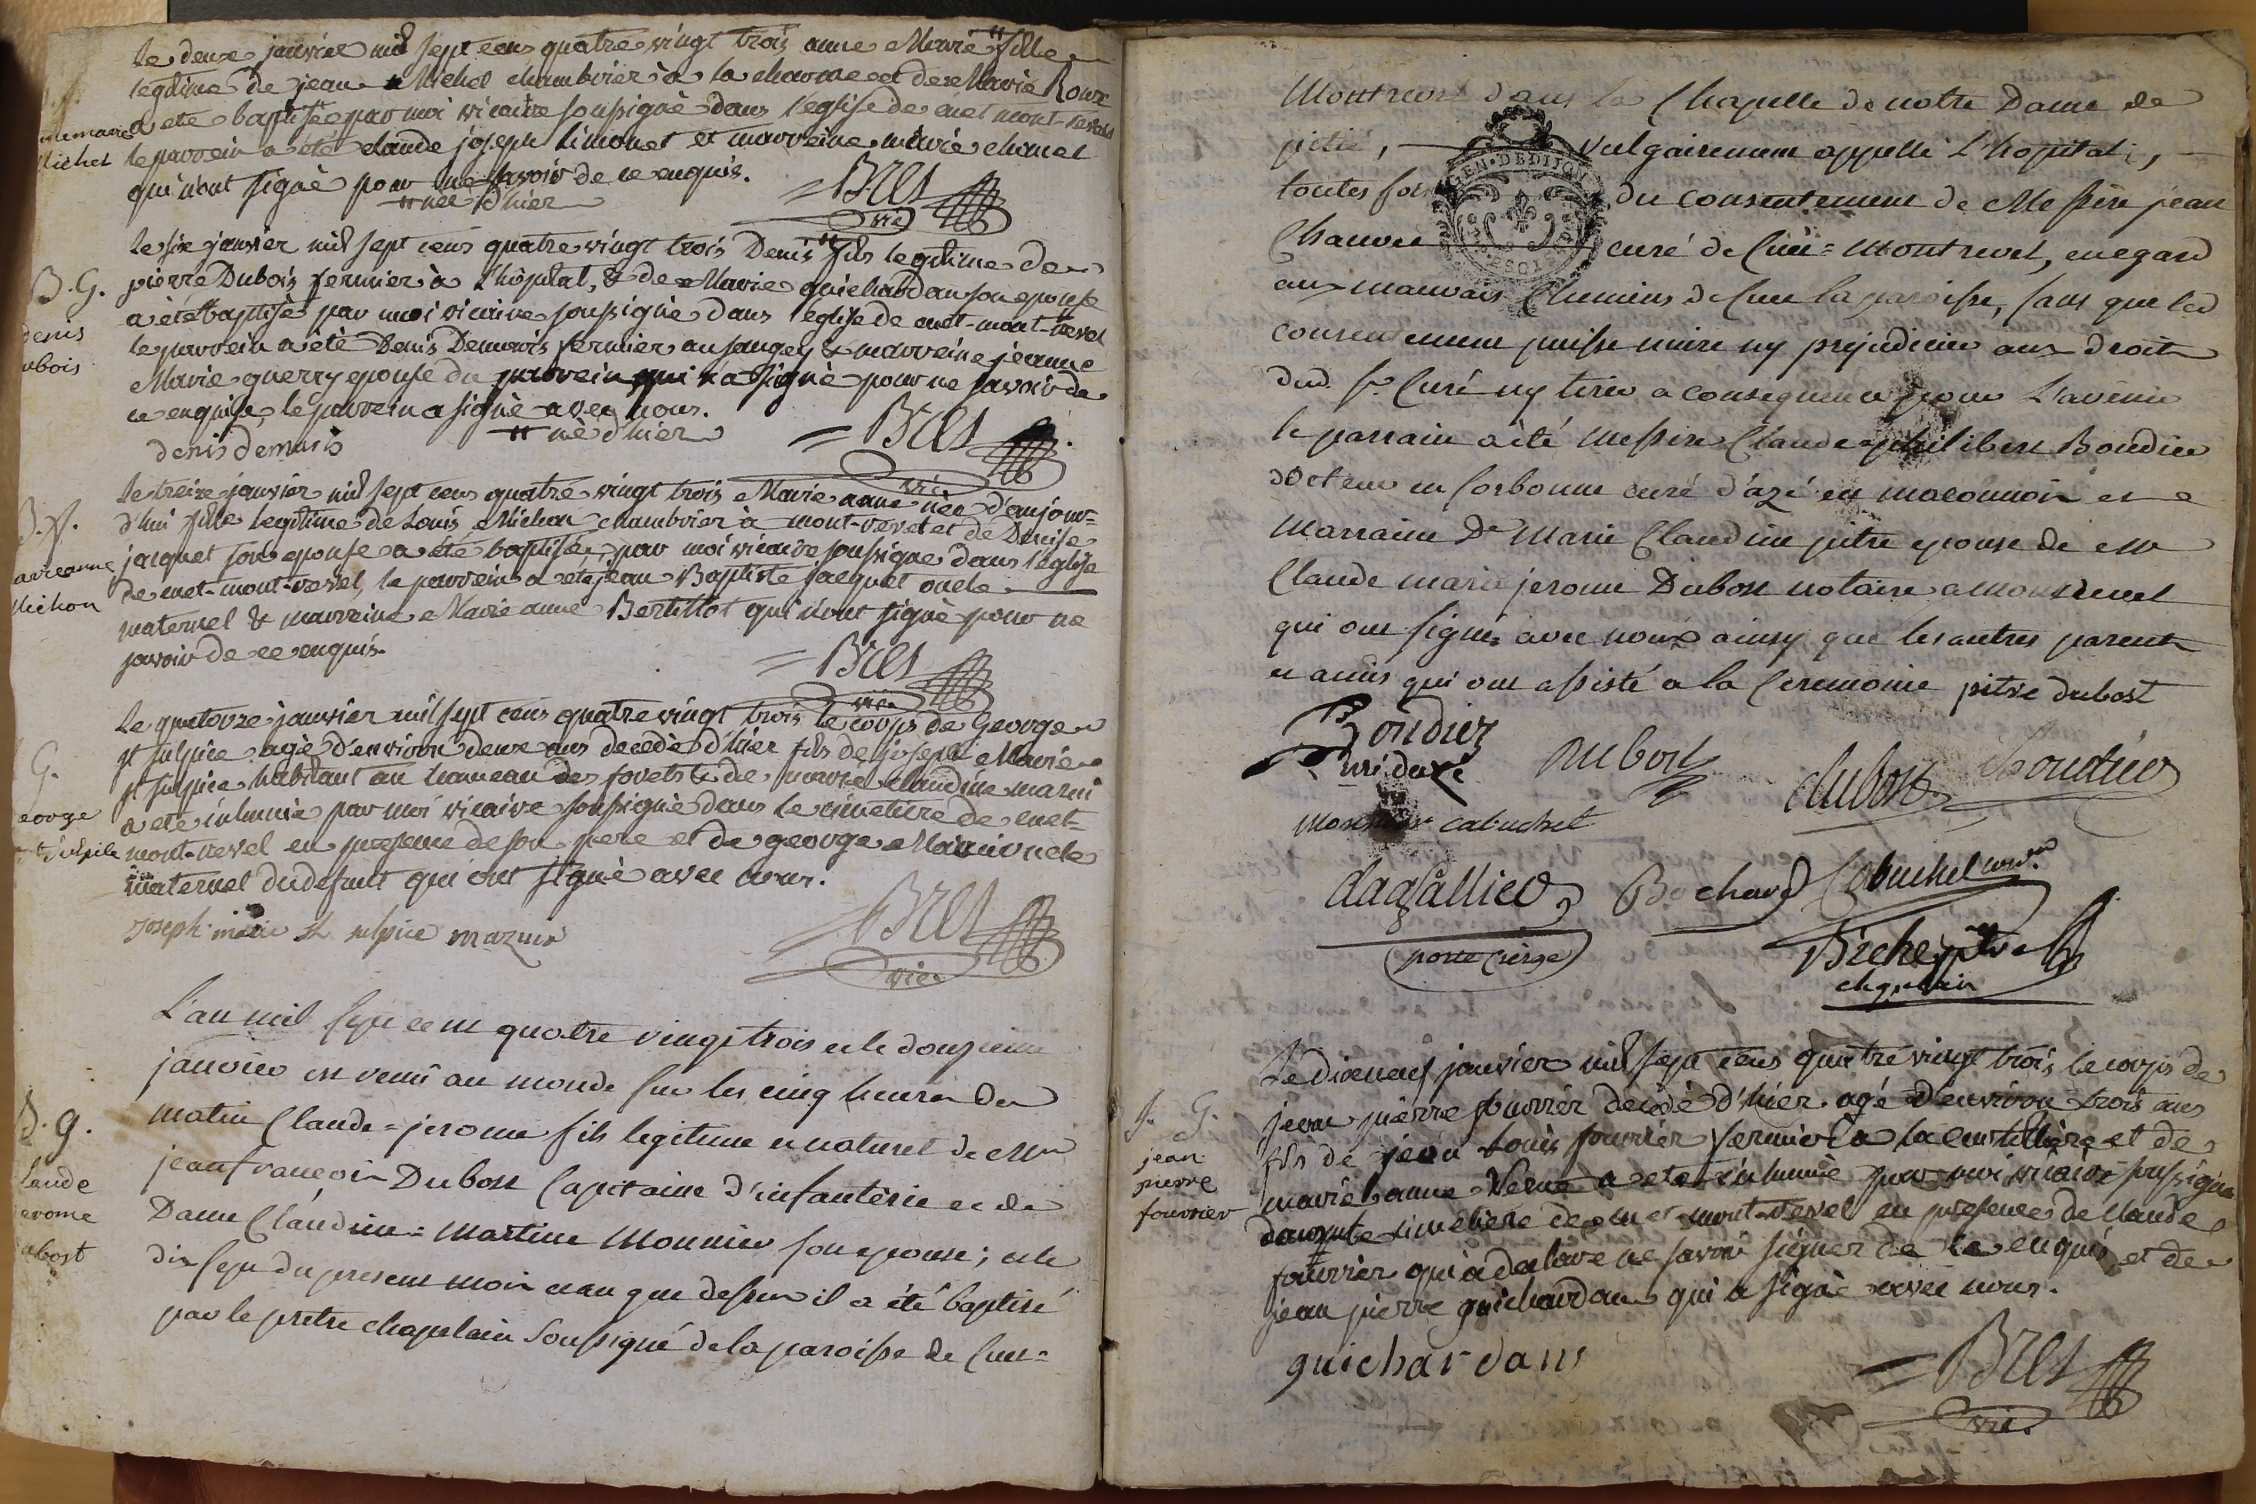 Le deux janvier mil sept cens quatre vingt trois anne Marie " fille
legitime de jean Michel chambrier à la charme et de Marie Roux
a été baptisée par moi vicaire soussigné dans l'eglise de cuet mont-revel
le parrein a été claude joseph Limonet et marreine marie
qui n'ont signé pour ne savoir de ce enquis.
" née d'hier
BRET
vic
anne marie
Michel
Le six janvier mil sept cens quatre vingt trois Denis " fils legitime de
pierre Dubois fermier à l'hôpital, & de Marie guichardan son epouse
a été baptisé par moi vicaire soussigné dans l'eglise de cuet-mont-revel
le parrein a été Denis Demaris fermier au saugey & marreine jeanne
Marie guerry epouse du parrein qui n'a signé pour ne savoir de
ce enquise, le parrein a signé avec nous.
" né d'hier
denis demaris
BRET
vic
B. G.
denis
ubois
Le treize janvier mil sept cens quatre vingt trois Marie anne née d'aujour=
d'hui fille legitime de Louis Michon chambrier à mont-revel et de Denise
jacquet son epouse a été baptisée par moi vicaire soussigné dans l'eglise
de cuet-mont-revel, le parrein a été jean Baptiste jacquet oncle
maternel & marreine Marie anne Bertillot qui n'ont signé pour ne
savoir de ce enquis.
BRET
vic
B. f.
arie anne
Michon
Le quatorze janvier mil sept cens quatre vingt trois le corps de George
st sulpice agé d'environ deux ans decedé d'hier fils de joseph Marie
st sulpice habitant au hameau des forets & de marie claudine
a été inhumé par moi vicaire soussigné dans le cimetiere de cuet-
mont-revel en presence de son pere et de george oncle
maternel du defunt qui ont signé avec nous.
joseph marie st sulpice
BRET
vic
G.
eorge
st sulpice
L'an mil sept cent quatre vingt trois et le douzieme
janvier est venu au monde sur les cinq heures du
matin Claude=jerome fils legitime et naturel de Mre
jean francois Dubost Capitaine d'infanterie et de
Dame Claudine=Martine Monnier son epouse; et le
dix sept du present mois et an que dessus il a été baptisé
par le pretre chapelain soussigné de la paroisse de Cuet=
B. g.
laude
erome
ubost
Montrevel dans la Chapelle de notre Dame de
pitié, vulgairement appellé L'hopital,
toutes fois du consentement de Messire jean
Chanvee curé de Cuet=Montrevel, en egard
aux mauvais chemins de Cuet la paroisse, sans que led
consentement puisse nuire ny prejudicier aux droits
dud. Sr. Curé ny tirer a consequence pour L'avenir
le parrain a été messire Claude philibert Boudier
docteur en Sorbonne curé d'azé en maconnois et
marraine De Marie Claudine pitre epouse de Mre
Claude marie jerome Dubost notaire a Montrevel
qui ont signés avec nous ainsy que les autres parents
et amis qui ont assisté a la Ceremonie pitre dubost
Boudier
curé d'azé
Dubost
dubost
Boudier
Monnier cabuchet
dagallier
porte cierge
Bochard
Cabuchet
Biche ptre
chapelain
GEN. DE DIJON
Le dixneuf janvier mil sept cens quatre vingt trois le corps de
jean pierre fourrier decedé d'hier agé d'environ trois ans
fils de jean Louis fourrier fermier à la et de
marie anne a été inhumé par moi vicaire soussigné
dans le cimetiere de cuet-mont-revel en presence de claude
fourrier qui a declaré ne savoir signer de ce enquis et de
jean pierre guichardan qui a signé avec nous.
guichardan
BRET
vic.
G.
jean
pierre
fourrier